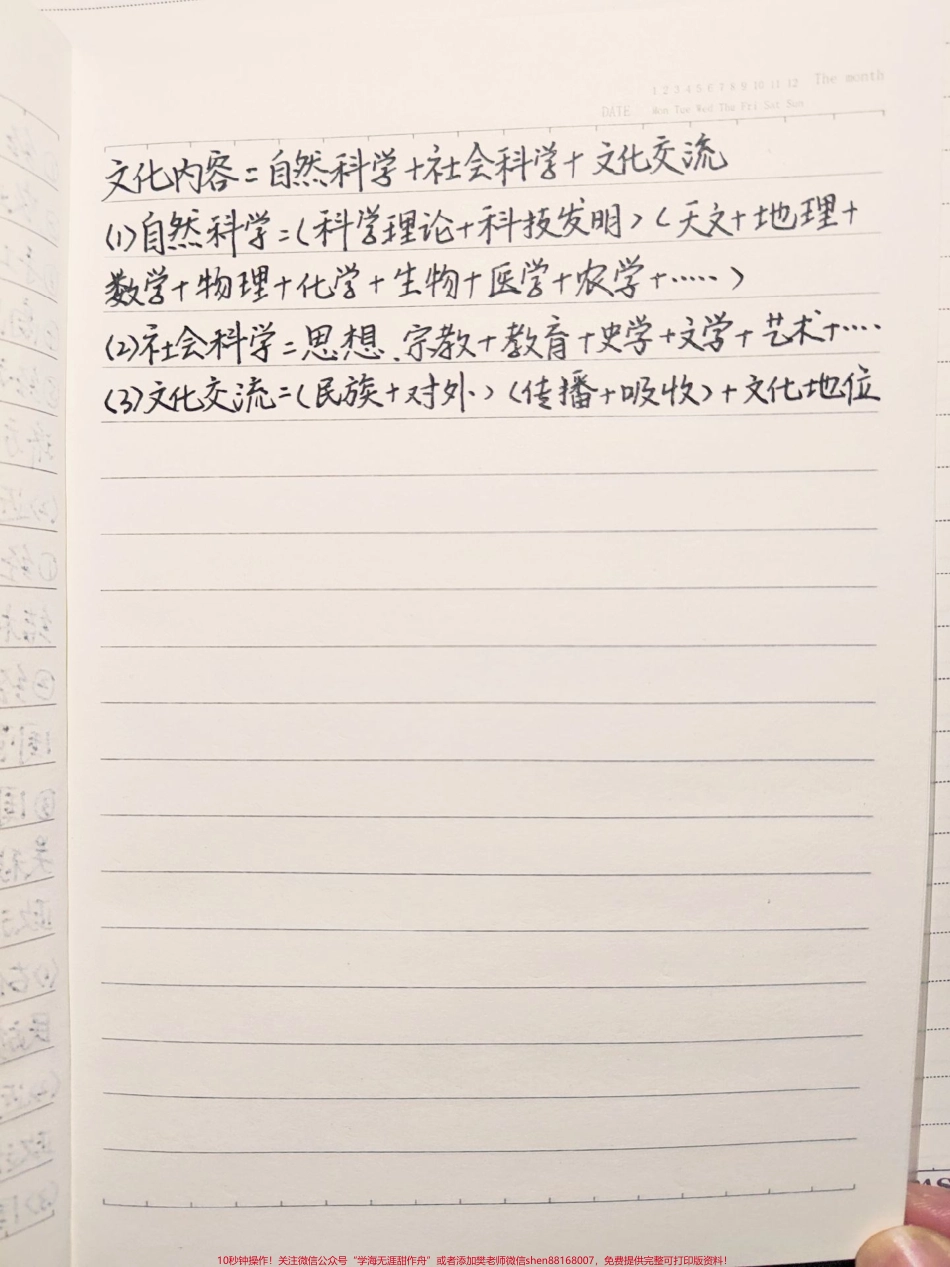 1 2 3 4 5 6 7 8 9 10 11 12 The month
DATE Mon Tue Wed Thu Fri Sat Sun
文化内容=自然科学+社会科学+文化交流
(1)自然科学=(科学理论+科技发明)(天文+地理+
数学+物理+化学+生物+医学+农学+……)
(2)社会科学=思想、宗教+教育+史学+文学+艺术+……
(3)文化交流=(民族+对外)(传播+吸收)+文化地位
10秒钟操作!关注微信公众号“学海无涯甜作舟”或者添加樊老师微信shen88168007,免费提供完整可打印版资料!